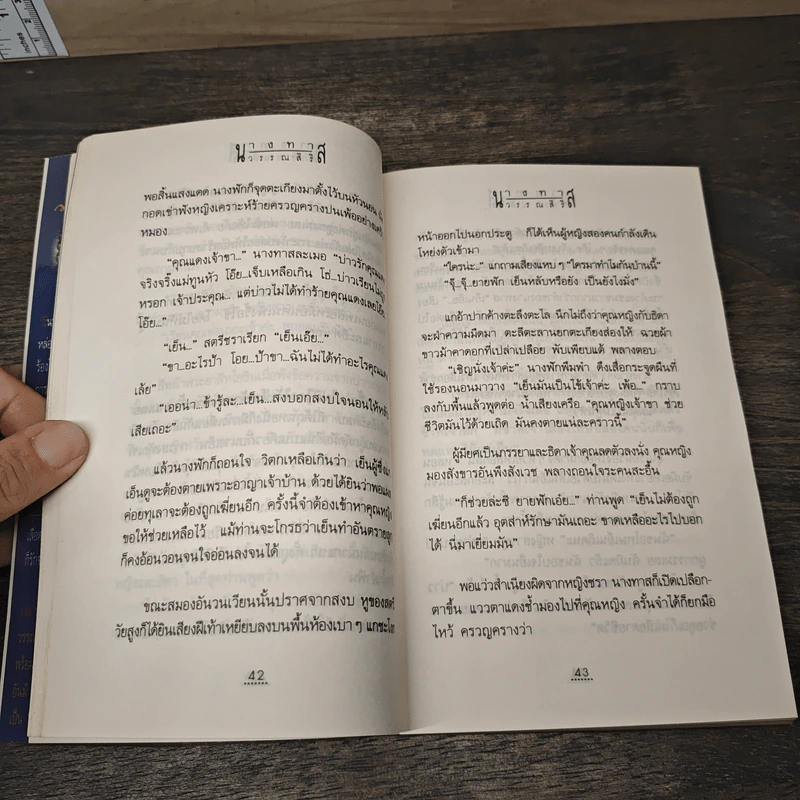 นางทาส
วรรณสิริ
พอสิ้นแสงแดด นางพักก็จุดตะเกียงมาตั้งไว้บนหัวนอน
กอดเข่าฟังหญิงเคราะห์ร้ายครวญครางปนเพ้ออย่าง
หมอง
“คุณแดงเจ้าขา...” นางทาสละเมอ “บ่าวรักคุณแดง
จริงจริ๊งแม่ทูนหัว โอ๊ย...เจ็บเหลือเกิน โธ่...บ่าวเรียนไม่ถูก
หรอก เจ้าประคุณ... แต่บ่าวไม่ได้ทำร้ายคุณแดงเลยโอ๊ย
โอ๊ย...”
“เย็น...” สตรีชราเรียก “เย็นเอ๊ย...”
“ขา...อะไรป้า โอย...ป้าขา...ฉันไม่ได้ทำอะไรคุณแดง
เล้ย”
“เออน่า...ข้ารู้ละ...เย็น...สงบอกสงบใจนอนให้หลับ
เสียเถอะ”
แล้วนางพักก็ถอนใจ วิตกเหลือเกินว่า เย็นผู้ซึ่ง
เอ็นดูจะต้องตายเพราะอาญาเจ้าบ้าน ด้วยได้ยินว่าพอแผล
ค่อยทุเลาจะต้องถูกเฆี่ยนอีก ครั้งนี้จำต้องเข้าหาคุณหญิง
ขอให้ช่วยเหลือไว้ แม้ท่านจะโกรธว่าเย็นทำอันตรายลูก
ก็คงอ้อนวอนจนใจอ่อนลงจนได้
ขณะสมองอันวนเวียนนั้นปราศจากสงบ หูของสตรี
วัยสูงก็ได้ยินเสียงฝีเท้าเหยียบลงบนพื้นห้องเบา ๆ แกชะโงก
42
นางทาส
วรรณสิริ
หน้าออกไปนอกประตู ก็ได้เห็นผู้หญิงสองคนกำลังเดิน
โหย่งตัวเข้ามา
“ใครน่ะ...” แกถามเสียงแหบ ๆ “ใครมาทำไมกันป่านนี้”
“จุ๊...จุ๊...ยายพัก เย็นหลับหรือยัง เป็นยังไงมั่ง”
แกอ้าปากค้างตะลึงตะไล นึกไม่ถึงว่าคุณหญิงกับธิดา
จะฝ่าความมืดมา ตะลีตะลานยกตะเกียงส่องให้ ฉวยผ้า
ขาวม้าคาดอกที่เปล่าเปลือย พับเพียบแต้ พลางตอบ
“เชิญนั่งเจ้าค่ะ” นางพักพึมพำ ดึงเสื่อกระจูดผืนที่
ใช้รองนอนมาวาง “เย็นมันเป็นไข้เจ้าค่ะ เพ้อ...” กราบ
ลงกับพื้นแล้วพูดต่อ น้ำเสียงเครือ “คุณหญิงเจ้าขา ช่วย
ชีวิตมันไว้ด้วยเถิด มันคงตายแน่ละคราวนี้”
ผู้มียศเป็นภรรยาและธิดาเจ้าคุณลดตัวลงนั่ง คุณหญิง
มองสังขารอันพึงสังเวช พลางถอนใจระคนสะอื้น
“ก็ช่วยล่ะซิ ยายพักเอ๋ย...” ท่านพูด “เย็นไม่ต้องถูก
เฆี่ยนอีกแล้ว อุตส่าห์รักษามันเถอะ ขาดเหลืออะไรไปบอก
ได้ นี่มาเยี่ยมมัน”
พอแว่วสำเนียงผิดจากหญิงชรา นางทาสก็เปิดเปลือก-
ตาขึ้น แววตาแดงช้ำมองไปที่คุณหญิง ครั้นจำได้ก็ยกมือ
ไหว้ ครวญครางว่า
43